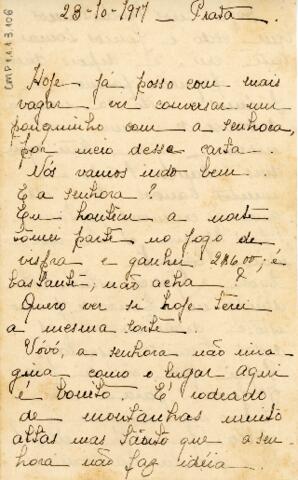 CMP 1.1.3.106
23-10-1917 Prata.
Hoje já posso com mais
vagar vir conversar um
pouquinho com a senhora,
por meio dessa carta.
Nós vamos indo bem.
E a senhora?
Eu hontem a noite
tomei parte no jogo de
vispra e ganhei 2$600; é
bastante, não acha?
Quero ver si hoje terei
a mesma sorte.
Vóvó, a senhora não ima-
gina como o lugar aqui
é bonito. É rodeado
de montanhas muito
altas mas tanto que a sen-
hora não faz idéia.